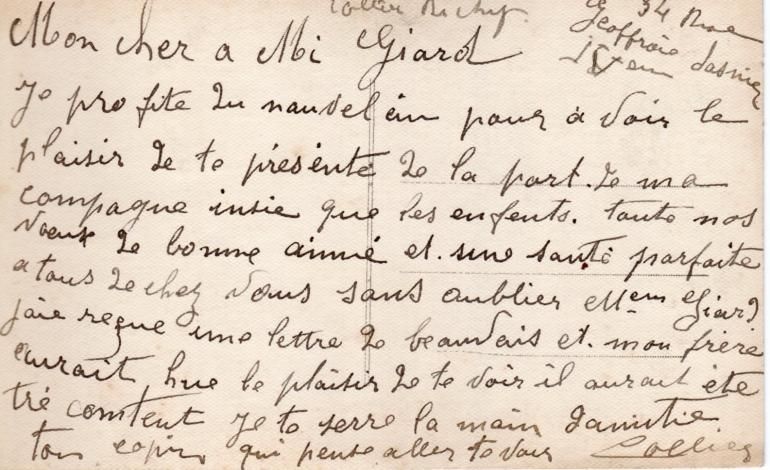 Collier Richy
34 Rue
Geoffroie Lasnier
IVem
Mon cher a Mi Giard
Je profite du nauvel ân pour a voir le
plaisir de te présénte de la part. de ma
compagne insie que les enfents. toute nos
Vœux de bonne ainné et. une santé parfaite
a tous de chez vous sans aublier Mem Giard
jaie reçue une lettre de beauvais et. mon frère
aurait hue le plâisir de te voir il aurait éte
tré comtent Je te serre la main damitie.
ton copin qui pense aller te voir Collier